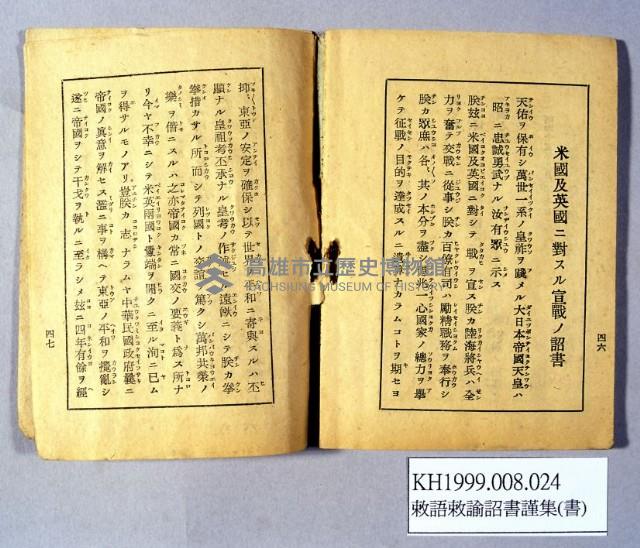 米國及英國ニ對スル宣戰ノ詔書
天佑ヲ保有シ萬世一系ノ皇祚ヲ踐メル大日本帝國天皇ハ
昭ニ忠誠勇武ナル汝有眾ニ示ス
朕玆ニ米國及英國ニ對シテ戰ヲ宣ス朕カ陸海將兵ハ全
力ヲ奮テ交戰ニ從事シ朕カ百僚有司ハ勵精職務ヲ奉行シ
朕カ眾庶ハ各〻其ノ本分ヲ盡シ億兆一心國家ノ總力ヲ擧
ケテ征戰ノ目的ヲ達成スルニ遺算ナカラムコトヲ期セヨ
四六
抑〻東亞ノ安定ヲ確保シ以テ世界ノ平和ニ寄與スルハ丕
顯ナル皇祖考丕承ナル皇考ノ作述セル遠猷ニシテ朕カ拳
拳措カサル所而シテ列國トノ交誼ヲ篤クシ萬邦共榮ノ
樂ヲ偕ニスルハ之亦帝國カ常ニ國交ノ要義ト為ス所ナ
リ今ヤ不幸ニシテ米英兩國ト釁端ヲ開クニ至ル洵ニ已ム
ヲ得サルモノアリ豈朕カ志ナラムヤ中華民國政府曩ニ
帝國ノ眞意ヲ解セス濫ニ事ヲ構ヘテ東亞ノ平和ヲ攪亂シ
遂ニ帝國ヲシテ干戈ヲ執ルニ至ラシメ玆ニ四年有餘ヲ經
四七
高雄市立歷史博物館
KAOHSIUNG MUSEUM OF HISTORY
KH1999.008.024
敕語敕諭詔書謹集(書)